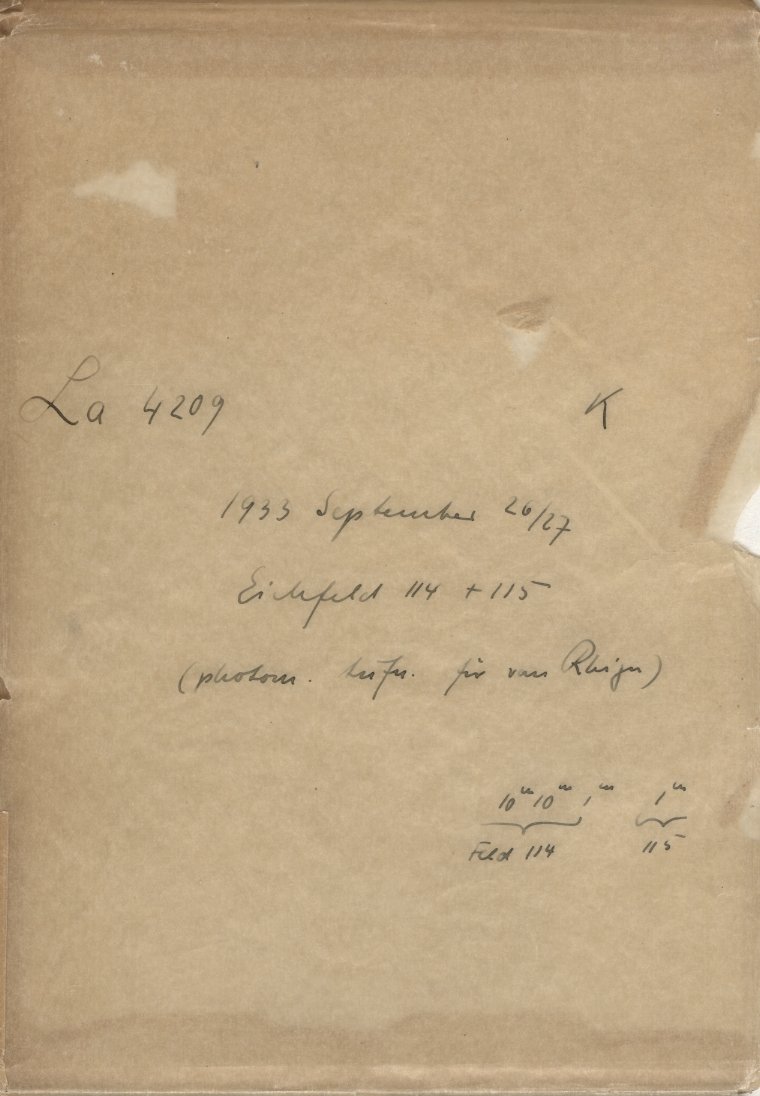 La 4209 K
1933 September 26/27
Eichfeld 114 + 115
(photom. Aufn. für van Rhijn)
10ᵐ 10ᵐ 1ᵐ 1ᵐ
Feld 114 115